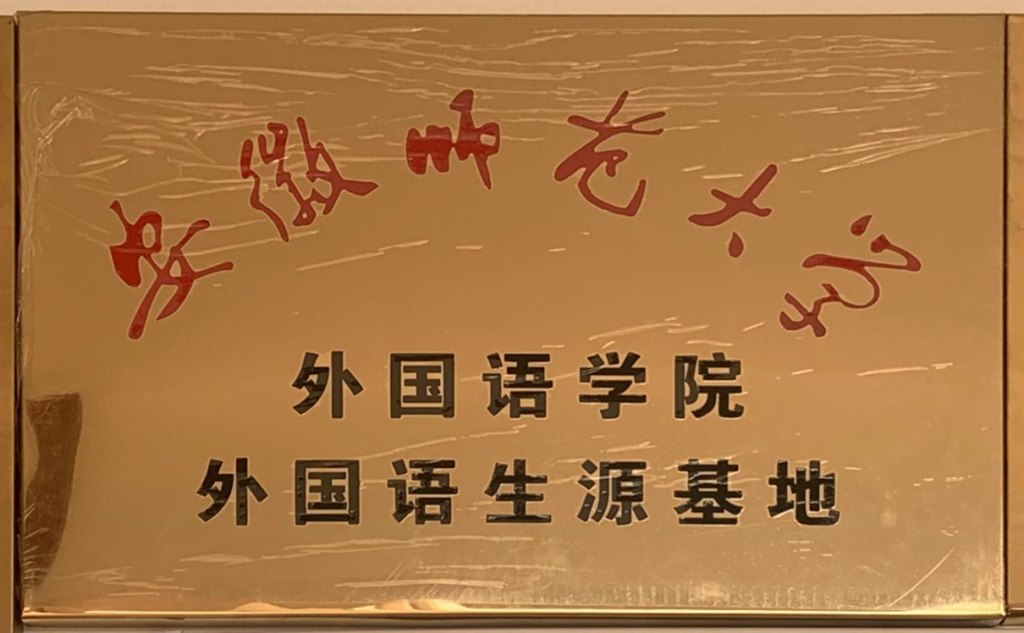 安徽师范大学
外国语学院
外国语生源基地